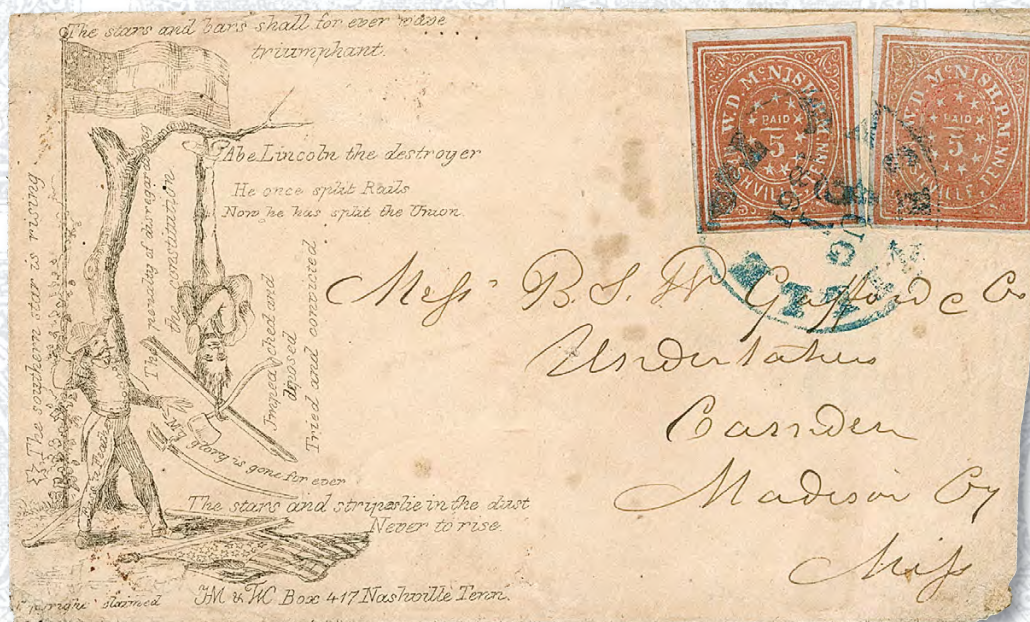 The stars and bars shall for ever wave
triumphant.
Abe Lincoln the destroyer
He once split Rails
Now he has split the Union.
The southern star is rising
The penalty of disregarding
the constitution
Impeached and
deposed
Tried and convicted
My glory is gone for ever
The stars and stripes lie in the dust
Never to rise.
JM & WC Box 417 Nashville Tenn.
W.D. McNISH, P.M
PAID
5
NASHVILLE, TENN.
W.D. McNISH, P.M
PAID
5
NASHVILLE, TENN.
Messrs B. S. W. Gafford & Co
Undertakers
Camden
Madison Cy
Miss